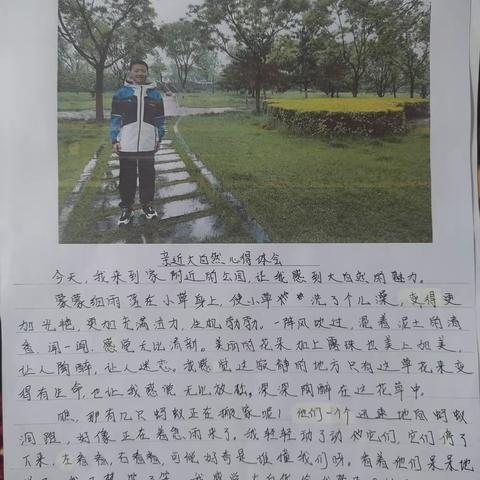 亲近大自然心得体会
今天,我来到家附近的公园,让我感到大自然的魅力。
蒙蒙细雨落在小草身上,使小草洗了个儿澡,变得更
加光艳,更加充满活力,生机勃勃。一阵风吹过,混着泥土的清
香,闻一闻,感觉无比清新。美丽的花朵加上露珠也美上加美,
让人陶醉,让人迷恋。我感觉这寂静的地方只有这草花来变
得有生命,也让我感觉无比放松。深深陶醉在这花草中。
瞧,那有几只蚂蚁正在搬家呢!他们一个个迅速地向蚂蚁
洞跑,好像正在着急雨来了。我轻轻动了动它们,它们停了
下来,左看看,右看看,可能好奇是谁撞我们呀。看着他们呆呆地